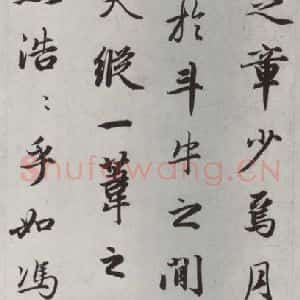 之章少焉月
於斗牛之間
天縱一葦之
浩〻乎如馮
Shufawang.CN